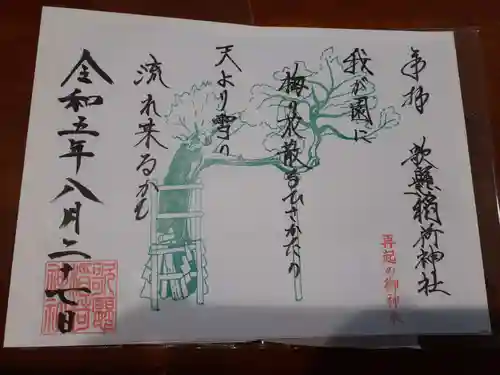 奉拝 歌懸稲荷神社
再起の御神木
我が園に
梅の花散るひさかたの
天より雪の
流れ来るかも
令和五年八月二十七日
歌懸
稲荷
神社